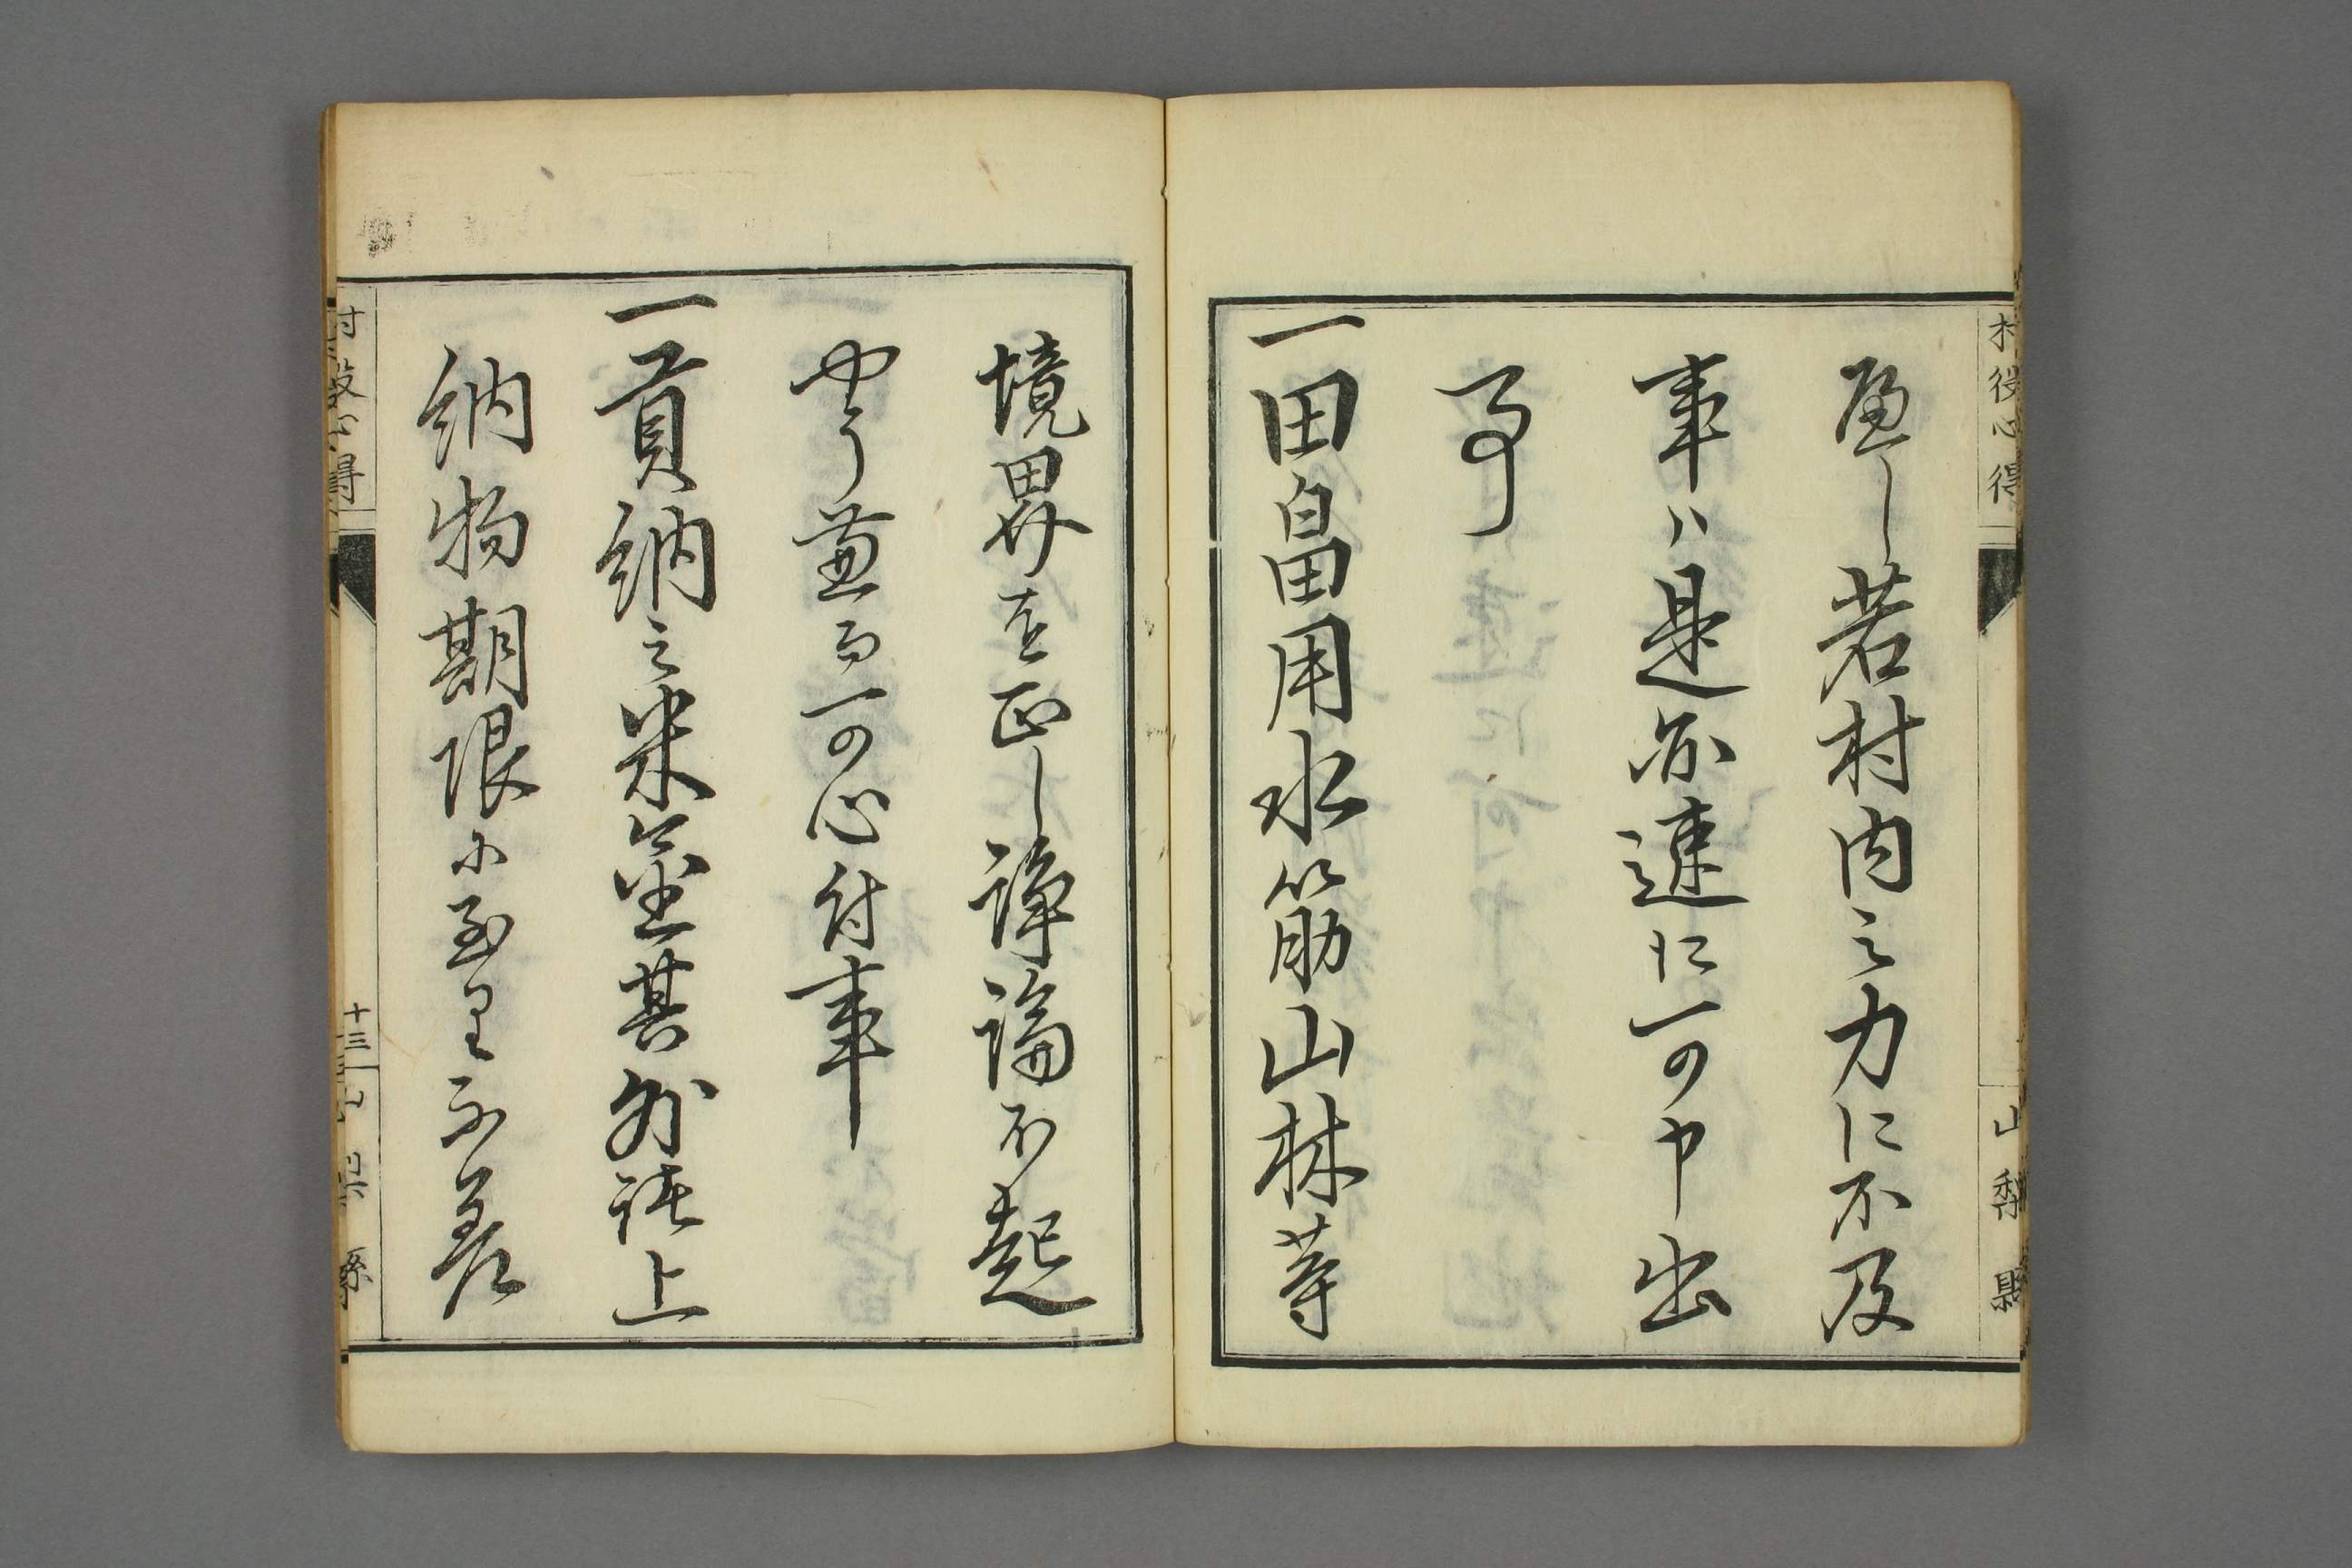 村役心得 山梨縣
し若村内之力に不及
事ハ是亦速に可申出
事
一田畠用水筋山林等
境界を正し諍論不起
やう兼而可心付事
一貢納之米金其外諸上
納物期限に至り不差
村役心得 十三 山梨縣